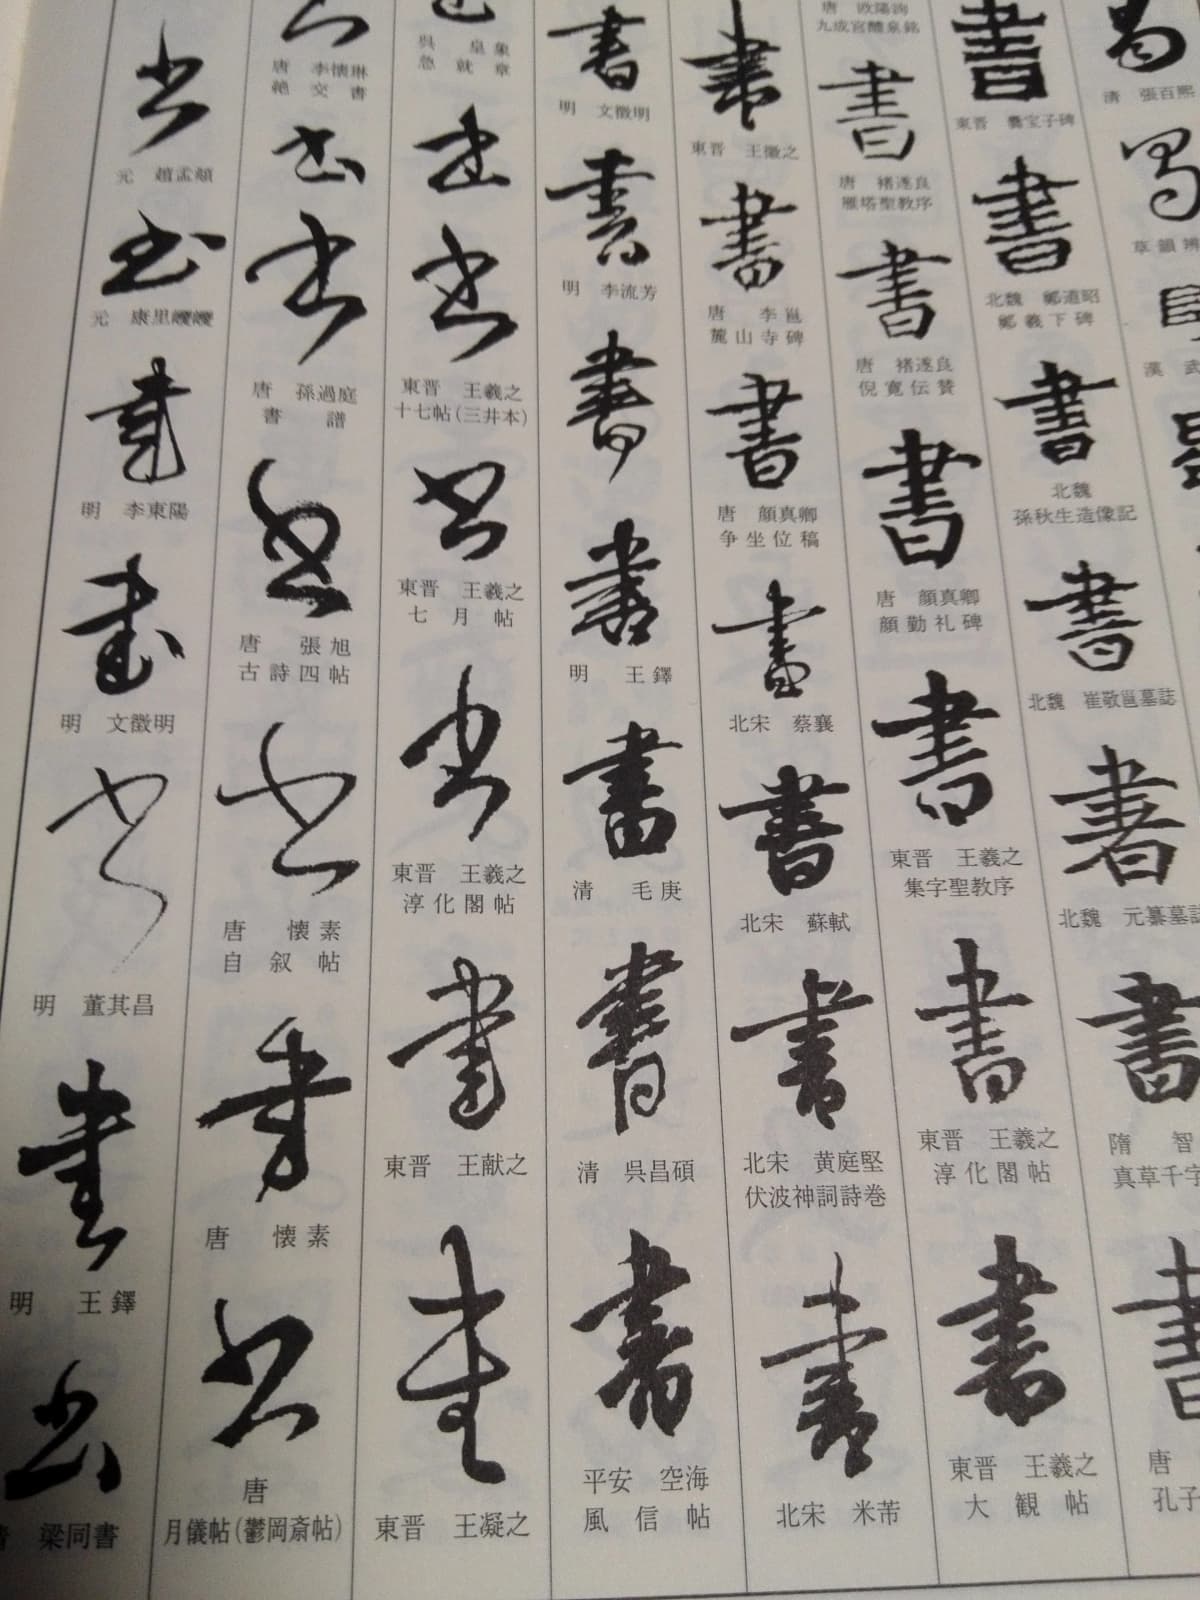 蜀
清 張百熙
蜀
草韻辨
漢 武
書
東晋 爨宝子碑
書
北魏 鄭道昭
鄭羲下碑
書
北魏
孫秋生造像記
書
北魏 崔敬邕墓誌
書
北魏 元纂墓誌
書
隋 智
真草千字
書
唐
孔子
唐 欧陽詢
九成宮醴泉銘
書
唐 褚遂良
雁塔聖教序
書
唐 褚遂良
倪寛伝賛
書
唐 顔真卿
顔勤礼碑
書
東晋 王羲之
集字聖教序
書
東晋 王羲之
淳化閣帖
書
東晋 王羲之
大観帖
書
東晋 王徽之
書
唐 李邕
麓山寺碑
書
唐 顔真卿
争坐位稿
書
北宋 蔡襄
書
北宋 蘇軾
書
北宋 黄庭堅
伏波神詞詩巻
書
北宋 米芾
書
明 文徴明
書
明 李流芳
書
書
明 王鐸
書
清 毛庚
書
清 呉昌碩
書
平安 空海
風信帖
呉 皇象
急就章
書
書
東晋 王羲之
十七帖(三井本)
書
東晋 王羲之
七月帖
書
東晋 王羲之
淳化閣帖
書
東晋 王献之
書
東晋 王凝之
唐 李懐琳
絶交書
書
書
唐 孫過庭
書譜
書
唐 張旭
古詩四帖
書
唐 懐素
自叙帖
書
唐 懐素
書
唐
月儀帖(鬱岡斎帖)
書
元 趙孟頫
書
元 康里巎巎
書
明 李東陽
書
明 文徴明
書
明 董其昌
書
明 王鐸
書
清 梁同書